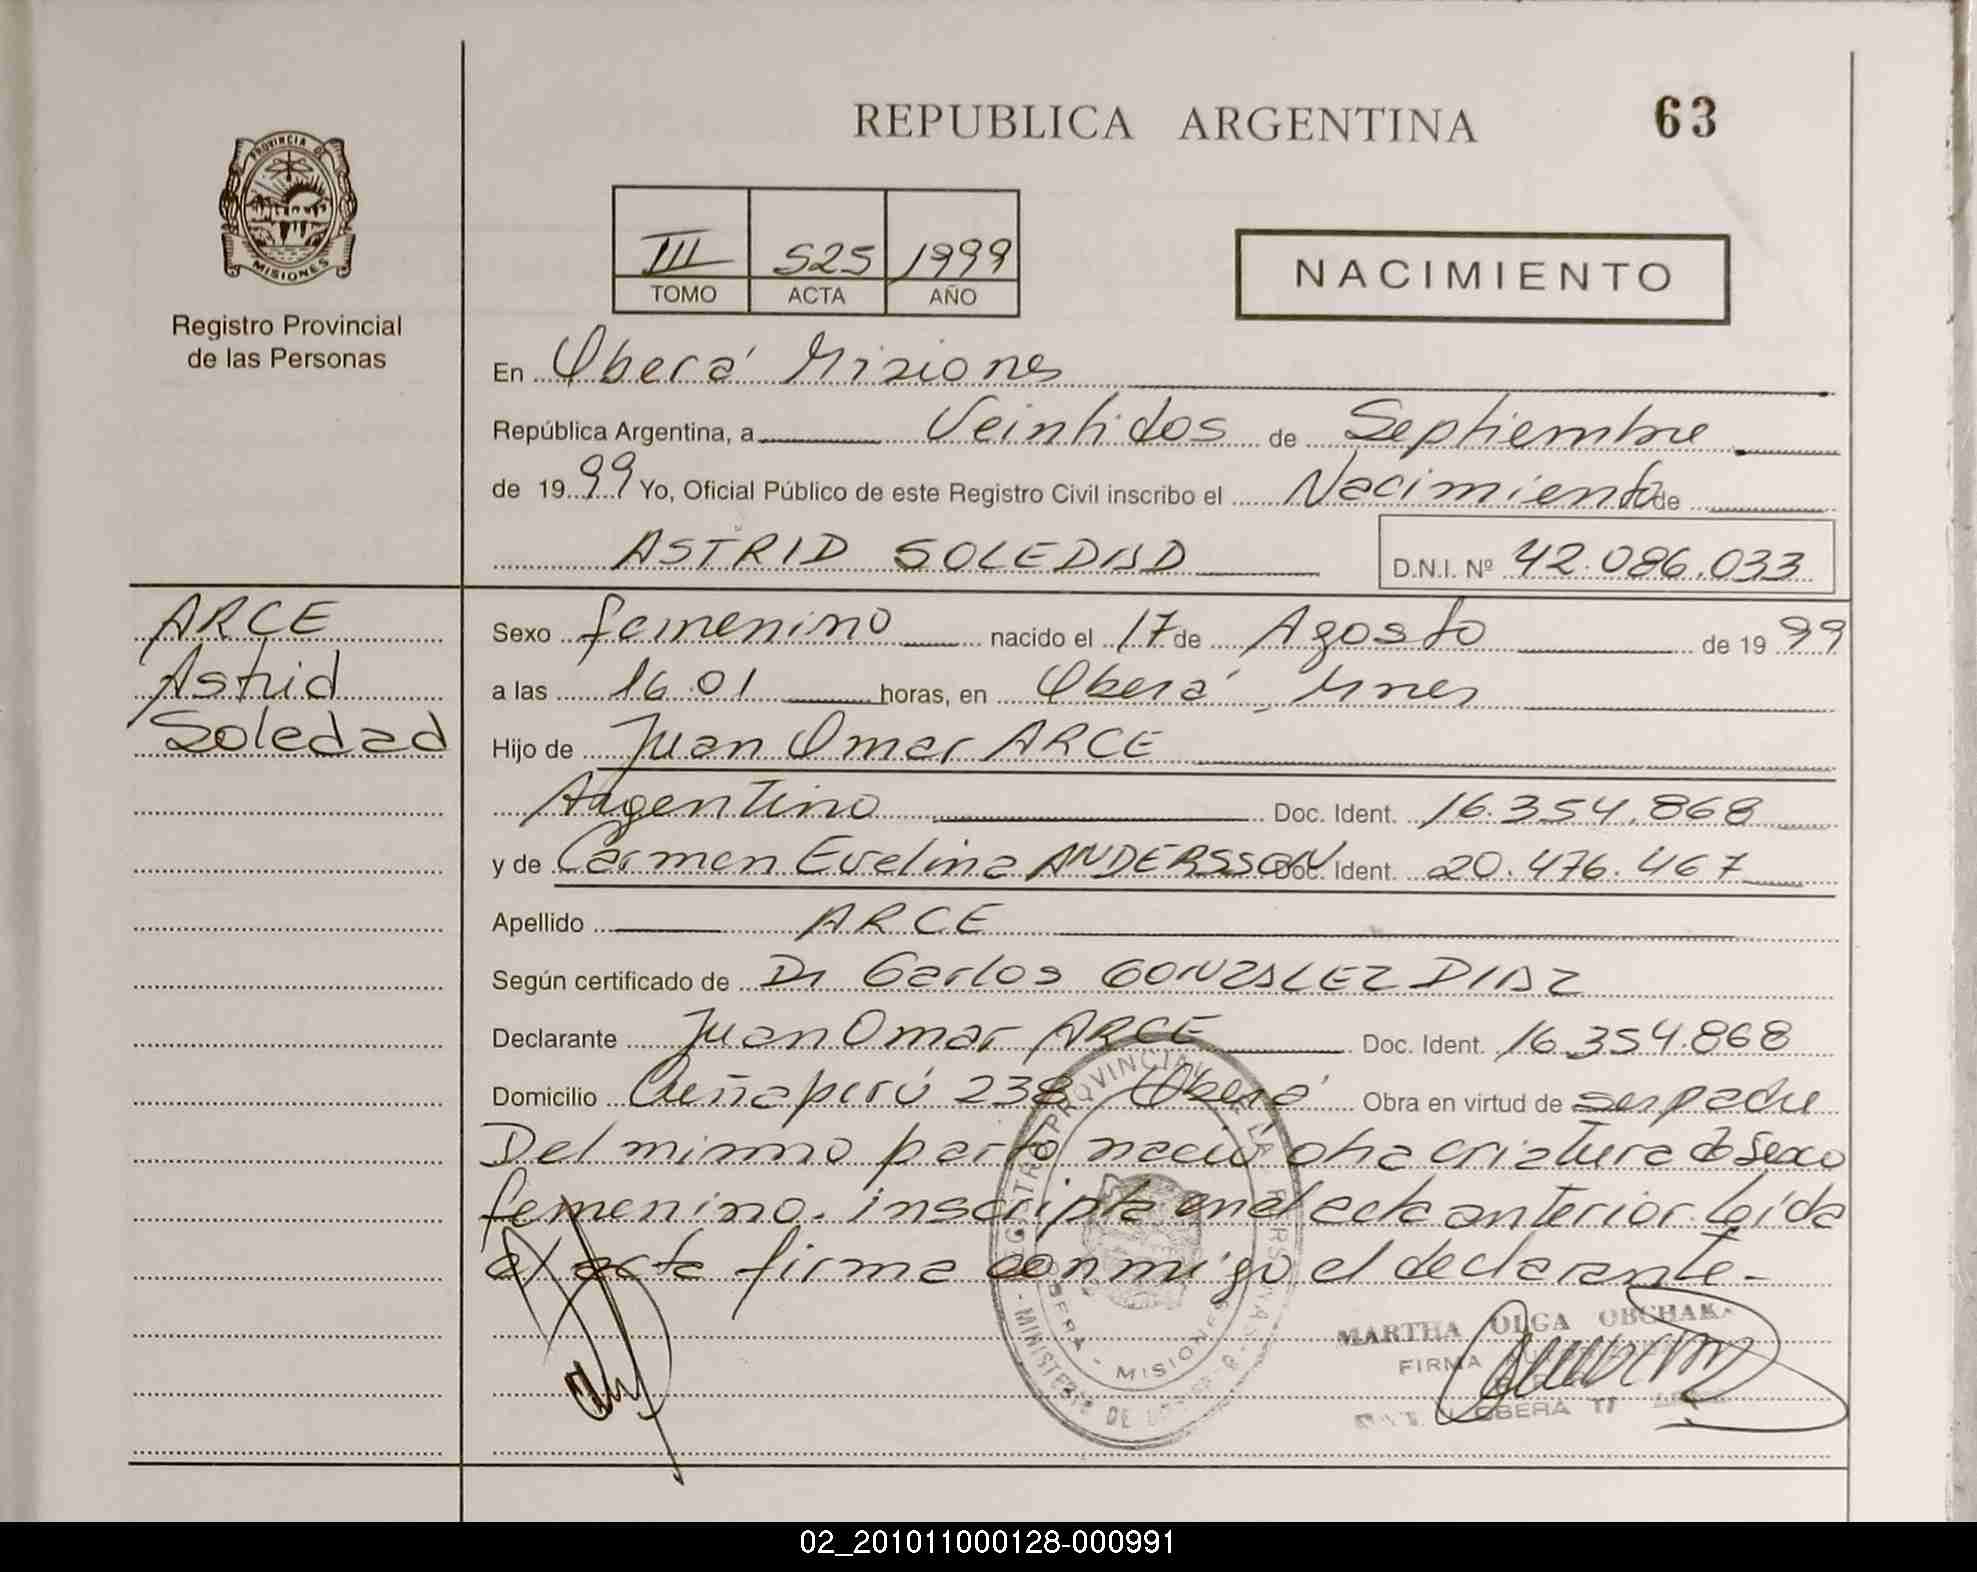 REPUBLICA ARGENTINA
63
PROVINCIA DE
MISIONES
Registro Provincial
de las Personas
III 525 1999
TOMO ACTA AÑO
NACIMIENTO
En Oberá Misiones
República Argentina, a Veintidos de Septiembre
de 1999 Yo, Oficial Público de este Registro Civil inscribo el Nacimiento de
ASTRID SOLEDAD
D.N.I. Nº 42.086.033
ARCE
Astrid
Soledad
Sexo femenino nacido el 17 de Agosto de 1999
a las 16.01 horas, en Oberá Mnes
Hijo de Juan Omar ARCE
Argentino Doc. Ident. 16.354.868
y de Carmen Evelina ANDERSSON Doc. Ident. 20.476.467
Apellido ARCE
Según certificado de Dr Carlos GONZALEZ DIAZ
Declarante Juan Omar ARCE Doc. Ident. 16.354.868
Domicilio 238 Oberá Obra en virtud de ser padre
Del mismo parto nació otra criatura de sexo
femenino. inscripta en el acta anterior. Leída
el acta firma conmigo el declarante.-
PROVINCIAL DE LAS PERSONAS
OBERA - MISIONES
MINISTERIO DE
MARTHA OLGA
FIRMA
OBERA
02_201011000128-000991